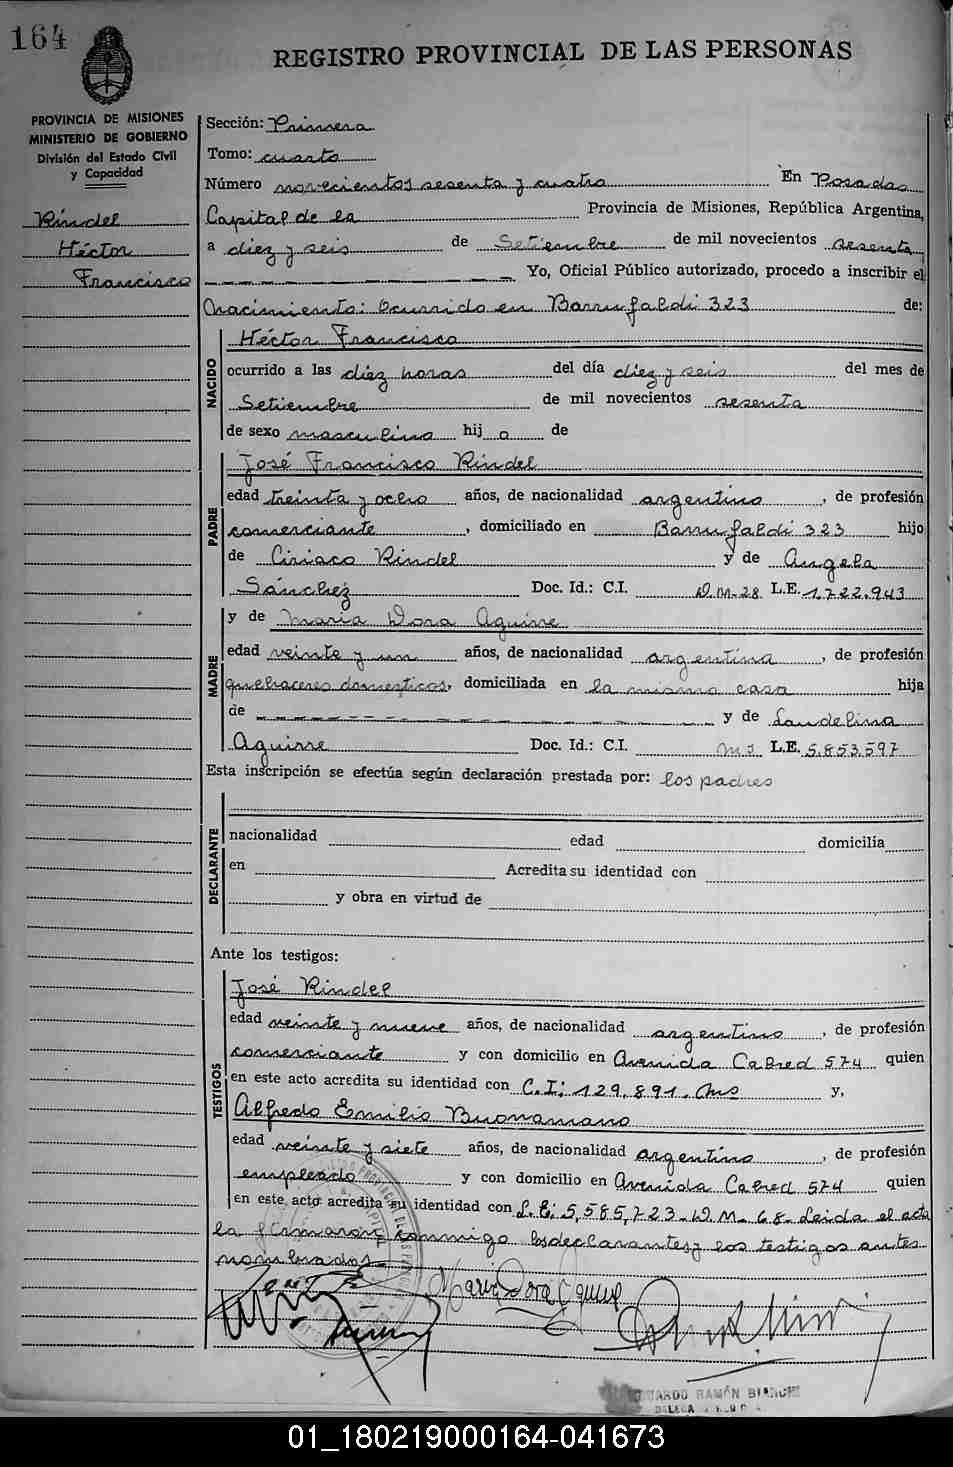 164
REGISTRO PROVINCIAL DE LAS PERSONAS
PROVINCIA DE MISIONES
MINISTERIO DE GOBIERNO
División del Estado Civil
y Capacidad
Rindel
Héctor
Francisco
Sección: Primera
Tomo: cuarto
Número novecientos sesenta y cuatro En Posadas
Capital de la Provincia de Misiones, República Argentina,
a diez y seis de Setiembre de mil novecientos sesenta
Yo, Oficial Público autorizado, procedo a inscribir el
nacimiento: ocurrido en Barrufaldi 323 de:
NACIDO
Héctor Francisco
ocurrido a las diez horas del día diez y seis del mes de
Setiembre de mil novecientos sesenta
de sexo masculino hij o de
PADRE
José Francisco Rindel
edad treinta y ocho años, de nacionalidad argentino, de profesión
comerciante, domiciliado en Barrufaldi 323 hijo
de Ciriaco Rindel y de Angela
Sánchez Doc. Id.: C.I. D.M.28 L.E. 1.722.943
MADRE
y de María Dora Aguirre
edad veinte y un años, de nacionalidad argentina, de profesión
quehaceres domesticos, domiciliada en la misma casa hija
de y de Laudelina
Aguirre Doc. Id.: C.I. Ms L.E. 5.853.597
Esta inscripción se efectúa según declaración prestada por: los padres
DECLARANTE
nacionalidad edad domicilia
en Acredita su identidad con
y obra en virtud de
Ante los testigos:
TESTIGOS
José Rindel
edad veinte y nueve años, de nacionalidad argentino, de profesión
comerciante y con domicilio en Avenida Cabred 574 quien
en este acto acredita su identidad con C.I: 129.891. Ms y,
Alfredo Emilio Buonamano
edad veinte y siete años, de nacionalidad argentino, de profesión
empleado y con domicilio en Avenida Cabred 574 quien
en este acto acredita su identidad con L.E: 5,585,723-D.M-68- Leida el acta
la firmaron conmigo los declarantes y los testigos antes
nombrados-
María Dora Aguirre
EDUARDO RAMÓN BIANCHI
01_180219000164-041673